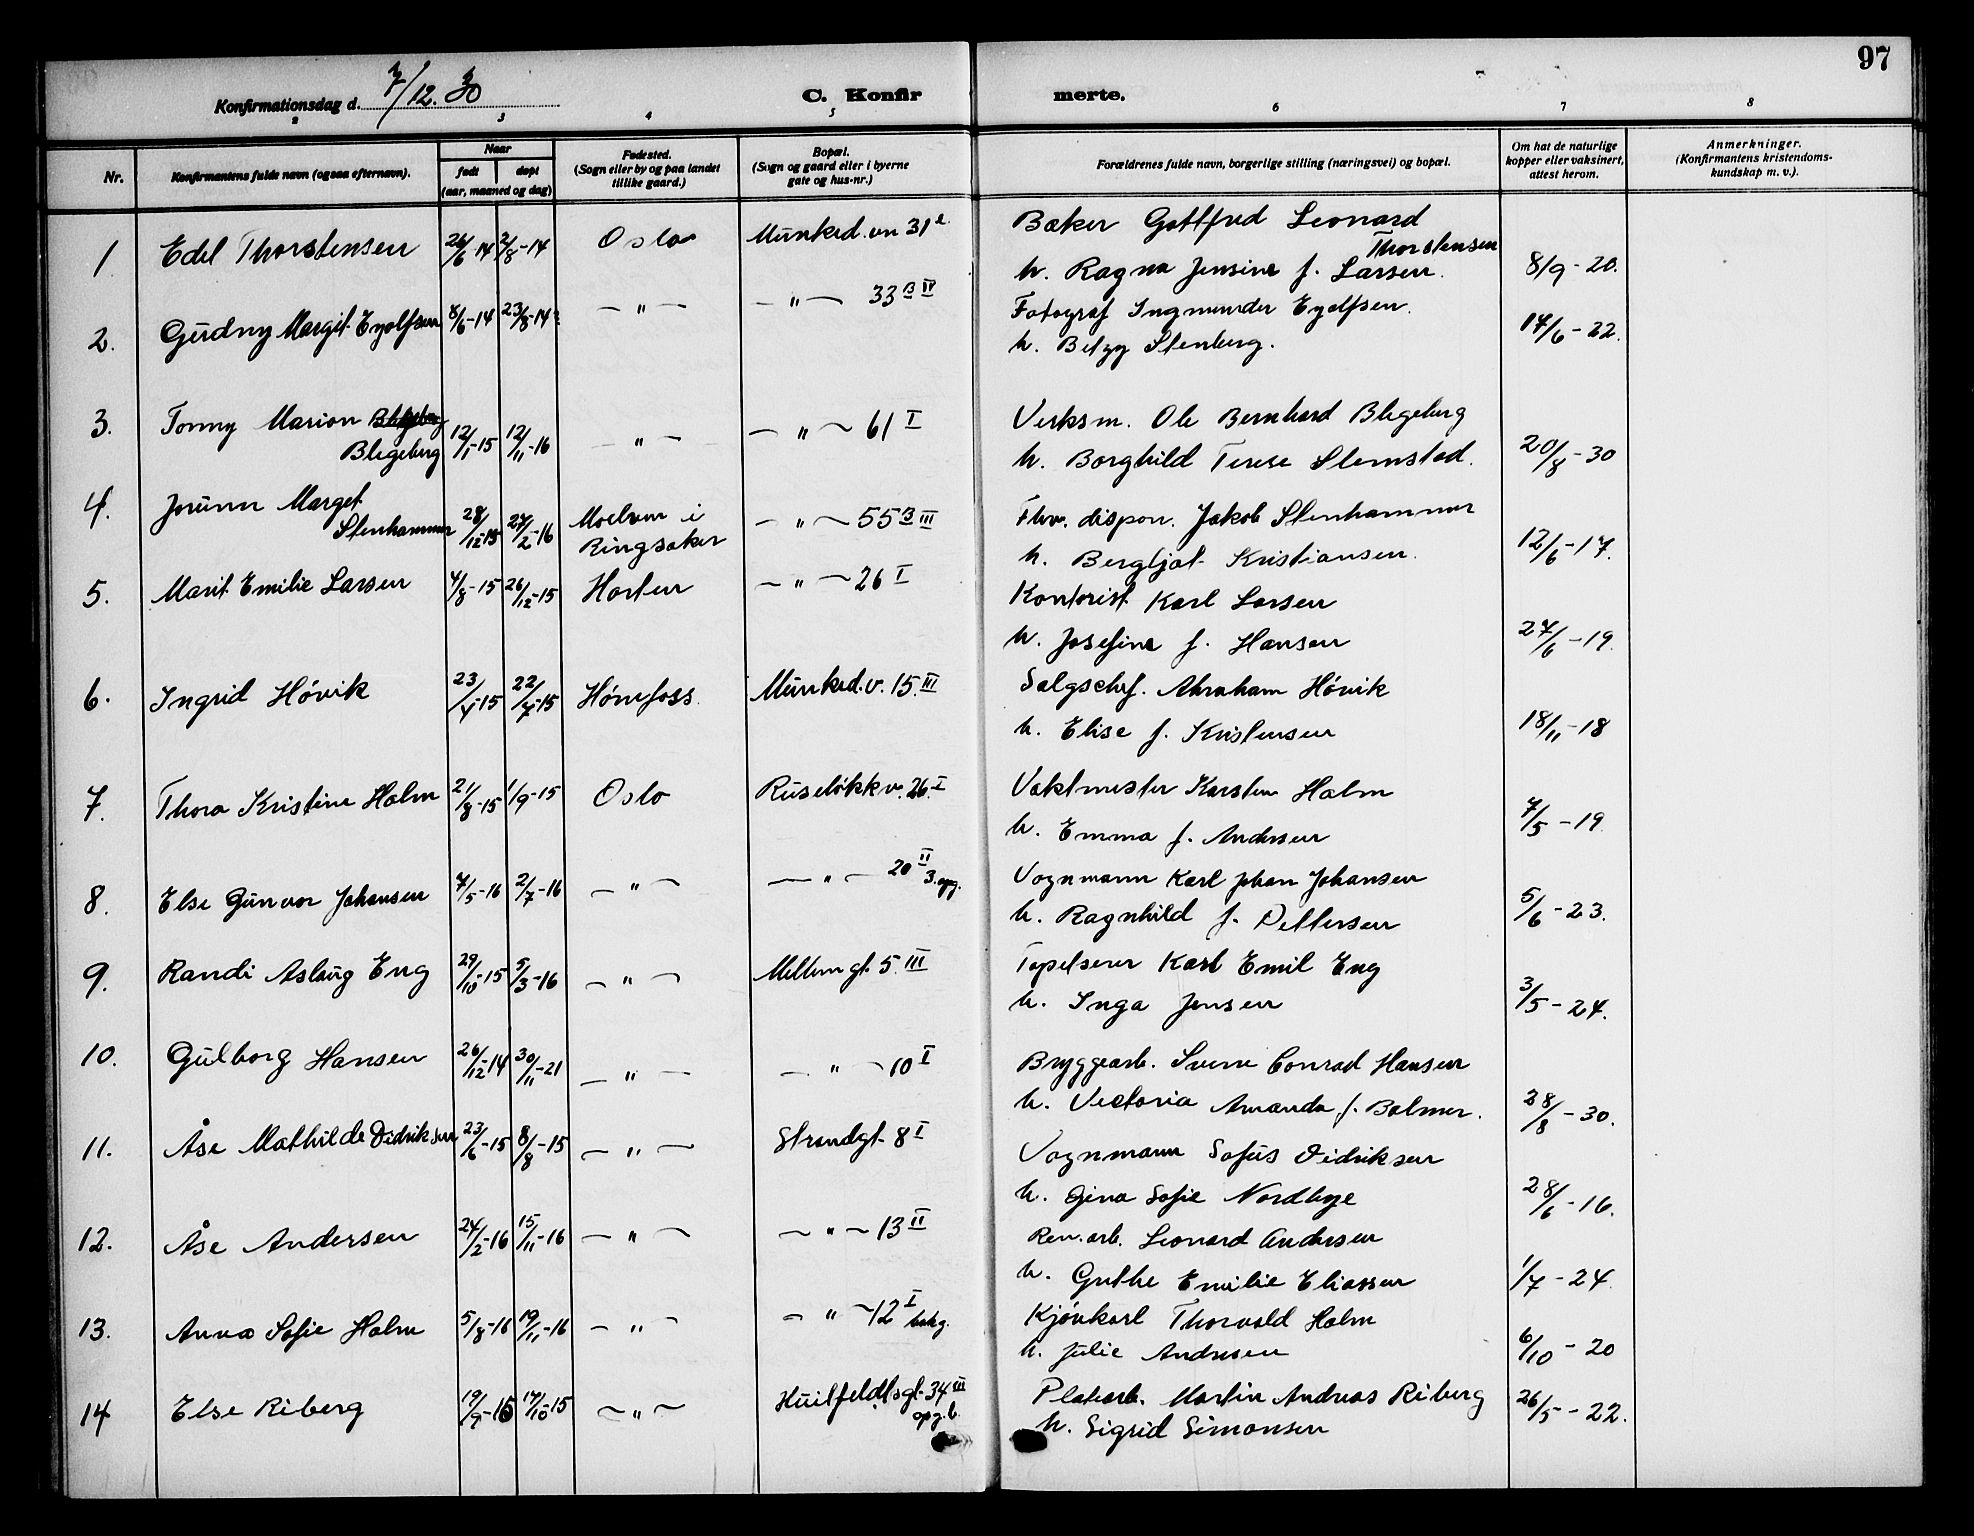 97
Konfirmationsdag d. 7/12. 30 C. Konfirmerte.
2 3 4 5 6 7 8
Nr. Konfirmantens fulde navn (ogsaa efternavn). Naar født døpt (aar, maaned og dag) Fødested. (Sogn eller by og paa landet tillike gaard.) Bopæl. (Sogn og gaard eller i byerne gate og hus-nr.) Forældrenes fulde navn, borgerlige stilling (næringsvei) og bopæl. Om hat de naturlige kopper eller vaksinert, attest herom. Anmerkninger. (Konfirmantens kristendomskundskap m. v.).
1 Edel Thorstensen 26/6-14 2/8-14 Oslo Munked.vn 31 Baker Gottfred Leonard Thorstensen
h. Ragna Jensine f. Larsen. 8/9-20.
2. Gudny Margit Eyolfsen 8/6-14 23/8-14 — " — — " — 33 B IV Fotograf Ingmunder Eyolfsen.
h. Betzy Stenberg. 17/6-22.
3. Tonny Marion Blegeberg 12/1-15 12/11-16 — " — — " — 61 I Verksm. Ole Bernhard Blegeberg
h. Borghild Terese Slemstad. 20/8-30
4. Jorunn Marget Stenhammer 28/12-15 27/2-16 Moelven i Ringsaker — " — 55 B III Fhv. dispon. Jakob Stenhammer
h. Bergljot Kristiansen. 12/6-17.
5. Marit Emilie Larsen 4/8-15 26/12-15 Horten — " — 26 I Kontorist Karl Larsen
h. Josefine f. Hansen 27/6-19.
6. Ingrid Hóvik 23/4-15 22/7-15 Hønefoss. Munked.v. 15. III Salgschef. Abraham Hóvik
h. Elise f. Kristensen 18/11-18
7. Thora Kristine Holm 21/8-15 1/9-15 Oslo Ruseløkkv. 26. I Vaktmester Karsten Holm
h. Emma f. Andersen 7/5-19.
8. Else Gunvor Johansen 7/5-16 2/7-16 — " — — " — 20 II 3. opg. Vognmann Karl Johan Johansen
h. Ragnhild f. Pettersen 5/6-23.
9. Randi Aslaug Eng 29/10-15 5/3-16 — " — Mellemgt. 5. III Tapetserer Karl Emil Eng
h. Inga Jensen 3/5-24.
10. Gulborg Hansen 26/12-14 30/11-21 — " — — " — 10 I Bryggearb. Sverre Conrad Hansen
h. Victoria Amanda f. Bolmer. 28/8-30.
11. Åse Mathilde Didriksen 23/6-15 8/8-15 — " — Strandgt. 8 I Vognmann Sofus Didriksen
h. Gina Sofie Nordbye 28/6-16.
12. Åse Andersen 24/2-16 15/11-16 — " — — " — 13 II Ren.arb. Leonard Andersen
h. Guthe Emilie Eliassen 1/7-24.
13. Anna Sofie Holm 5/8-16 19/11-16 — " — — " — 12 I bakg. Kjørekarl Thorvald Holm
h. Julie Andresen 6/10-20
14 Else Riberg 19/9-15 17/10-15 — " — Huitfeldtsgt. 34 III opg. b. Platearb. Martin Andreas Riberg
h. Sigrid Simonsen 26/5-22.